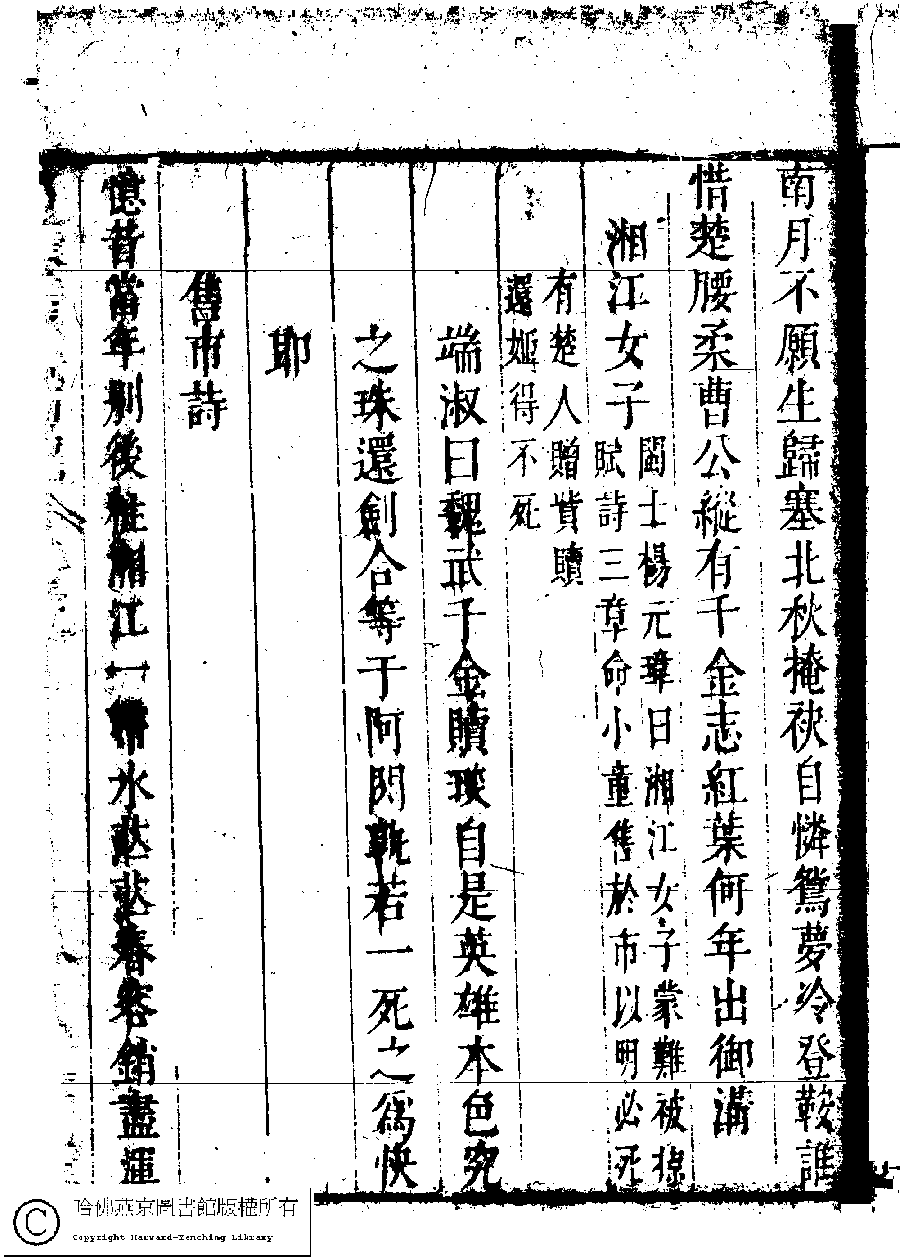 南月不願生歸塞北秋掩袂自憐鴛夢冷登鞍誰
惜楚腰柔曹公縱有千金志紅葉何年出御溝
湘江女子
閩士楊元瑋曰湘江女子蒙難被掠
賦詩三章命小童售於市以明必死
有楚人贈貲贖
還姬得不死
端淑曰魏武子金贖琰自是英雄本色究
之珠還劍合等于阿閦孰若一死之爲快
耶
售市詩
憶昔當年別後湘江一水春容銷盡
哈佛燕京圖書館版權所有
Copyright Harvard-Yenching Library